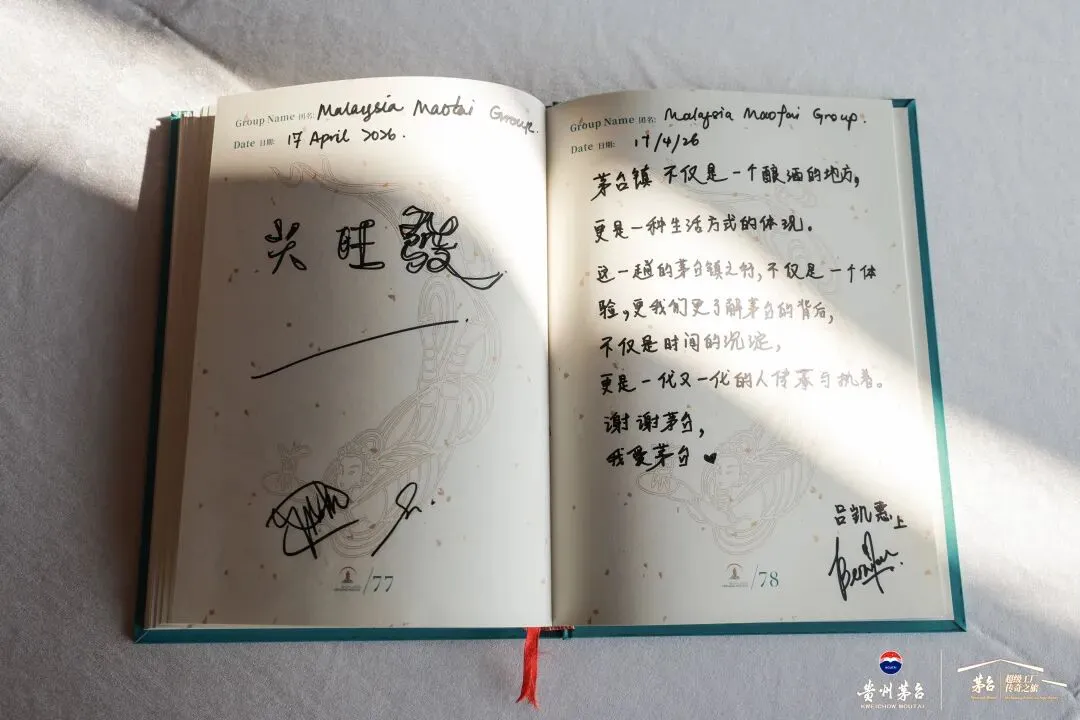 Group Name 团名: Malaysia Maotai Group.
Date 日期: 17 April 2026.
兴旺發
/77
Group Name 团名: Malaysia Maotai Group.
Date 日期: 17/4/26
茅台镇不仅是一个酿酒的地方,
更是一种生活方式的体现。
这一趟的茅台镇之行,不仅是一个体
验,更我们更了解茅台的背后,
不仅是时间的沉淀,
更是一代又一代的人传承与执着。
谢谢茅台,
我爱茅台 ♥
吕凯惠上
/78
貴州茅台
KWEICHOW MOUTAI
茅台
超级工厂
传奇之旅